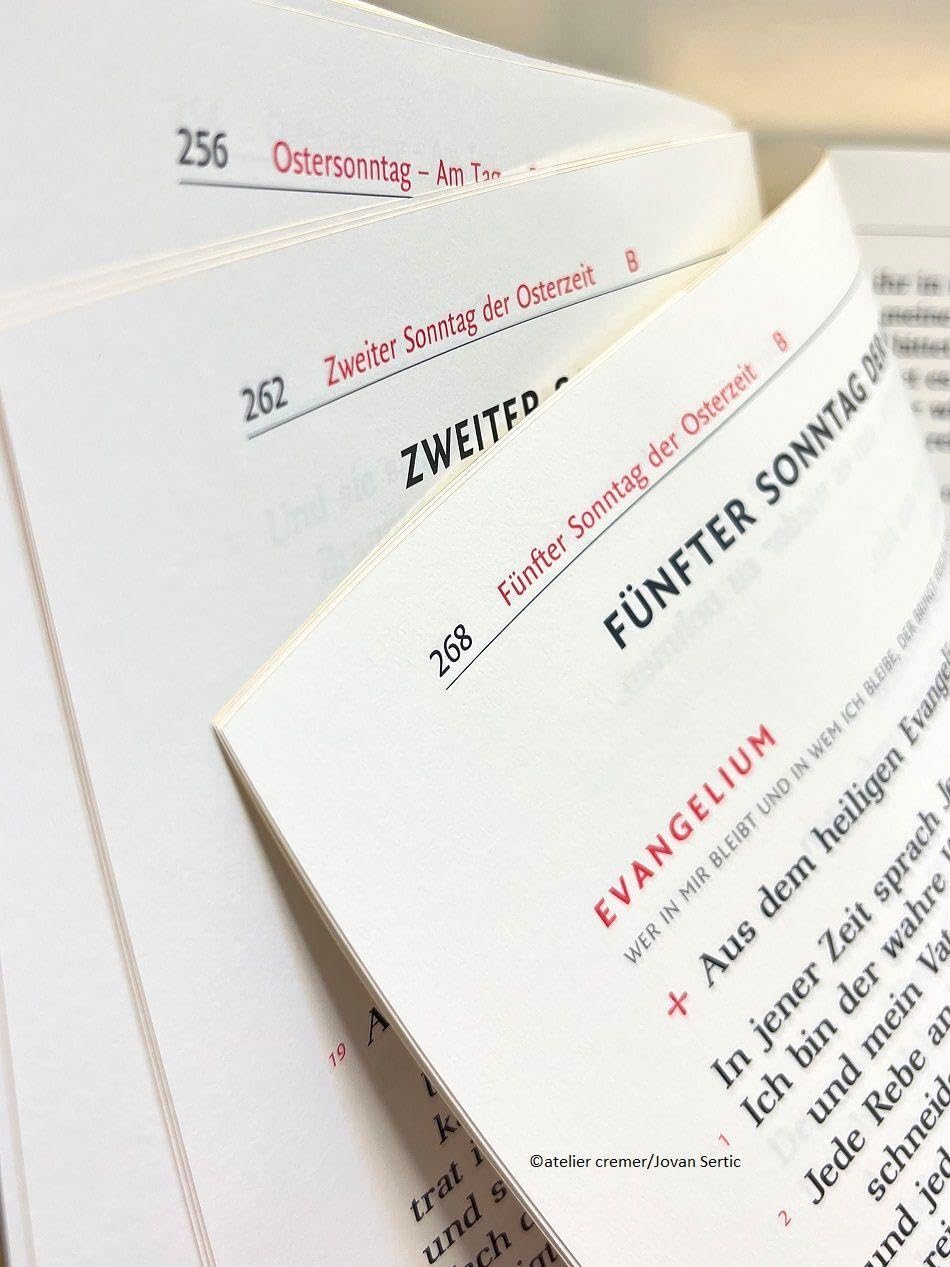 256 Ostersonntag – Am Tag
262 Zweiter Sonntag der Osterzeit B
ZWEITER
268 Fünfter Sonntag der Osterzeit B
FÜNFTER SONNTAG DER
EVANGELIUM
WER IN MIR BLEIBT UND IN WEM ICH BLEIBE, DER BRINGT
+ Aus dem heiligen Evange
In jener Zeit sprach
1 Ich bin der wahre
und mein Vat
2 Jede Rebe an
schneid
und jed
19 A
trat i
und s
©atelier cremer/Jovan Sertic